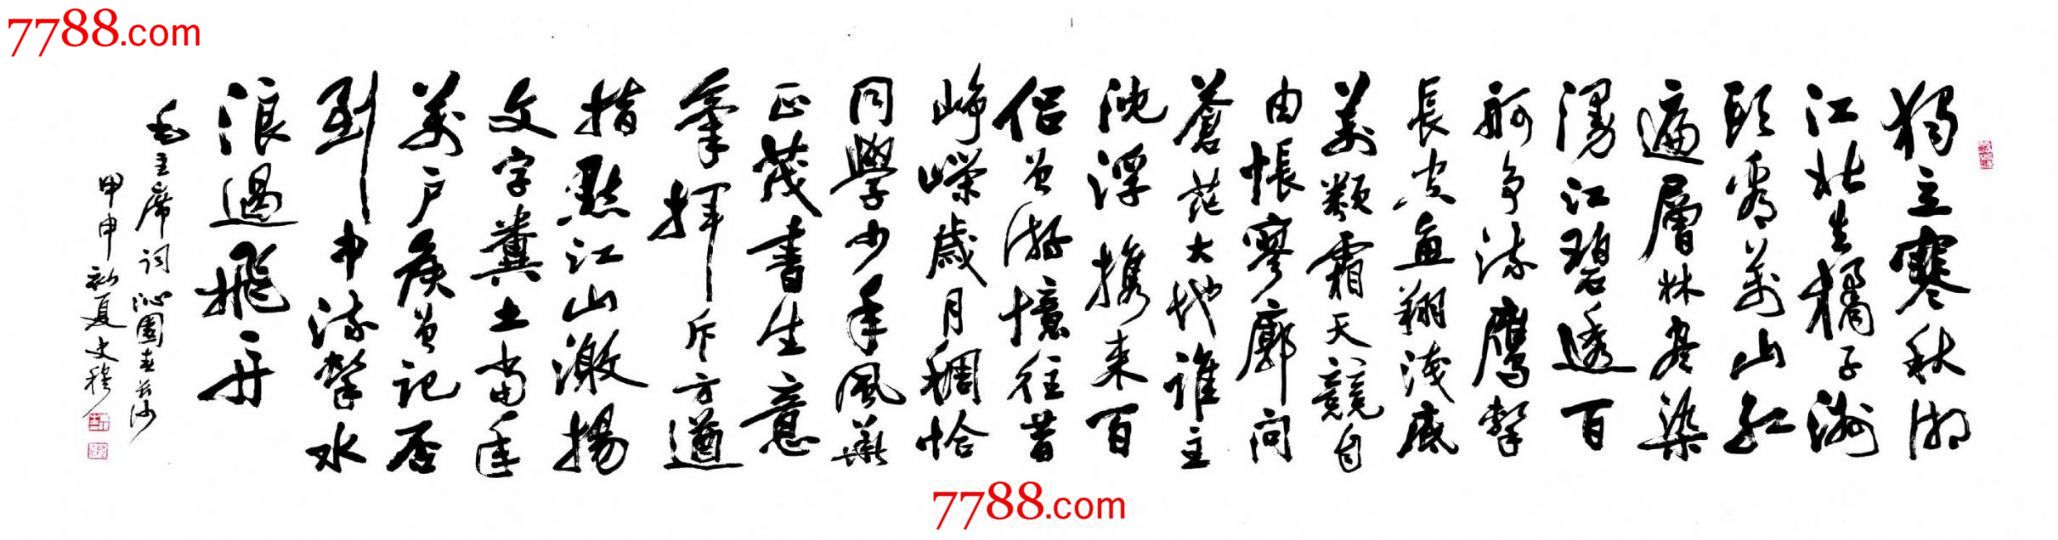 7788.com
獨立寒秋湘
江北去橘子洲
頭看萬山紅
遍層林盡染
漫江碧透百
舸爭流鷹擊
長空魚翔淺底
萬類霜天競自
由悵寥廓問
蒼茫大地誰主
沈浮攜來百
侣曾游憶往昔
崢嶸歲月稠恰
同學少年風華
正茂書生意
氣揮斥方遒
指點江山激揚
文字糞土當年
萬户侯曾記否
到中流擊水
浪遏飛舟
毛主席詞沁園春長沙
甲申初夏文穆
7788.com